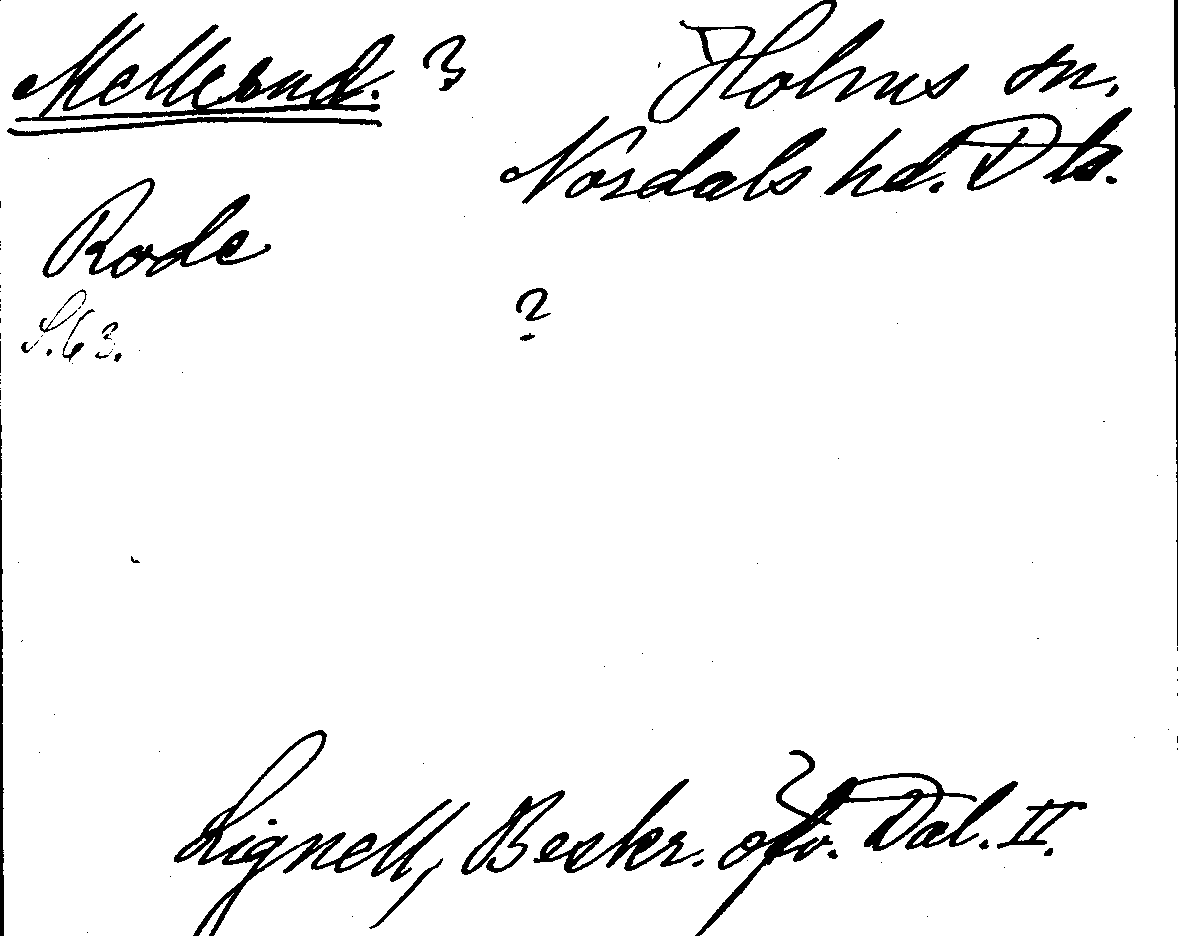 Mellerud. ?
Holms sn.
Nordals hd. Dls.
Rode
S. 63.
?
Lignell, Beskr. öfv. Dal. II.